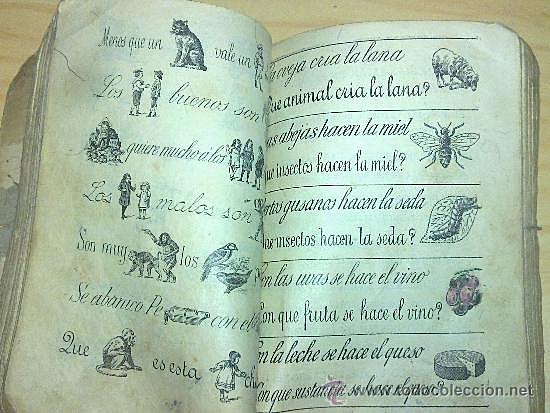 Menos que un vale un
Los buenos son
quiere mucho a los
Los malos son
Son muy los
Se abanica Pe con el
Que es esta
La oveja cria la lana
Que animal cria la lana?
Las abejas hacen la miel
Que insectos hacen la miel?
gusanos hacen la seda
Que insectos hacen la seda?
Con las uvas se hace el vino
Con que fruta se hace el vino?
Con la leche se hace el queso
Con que se hace el queso?
www.todocoleccion.net